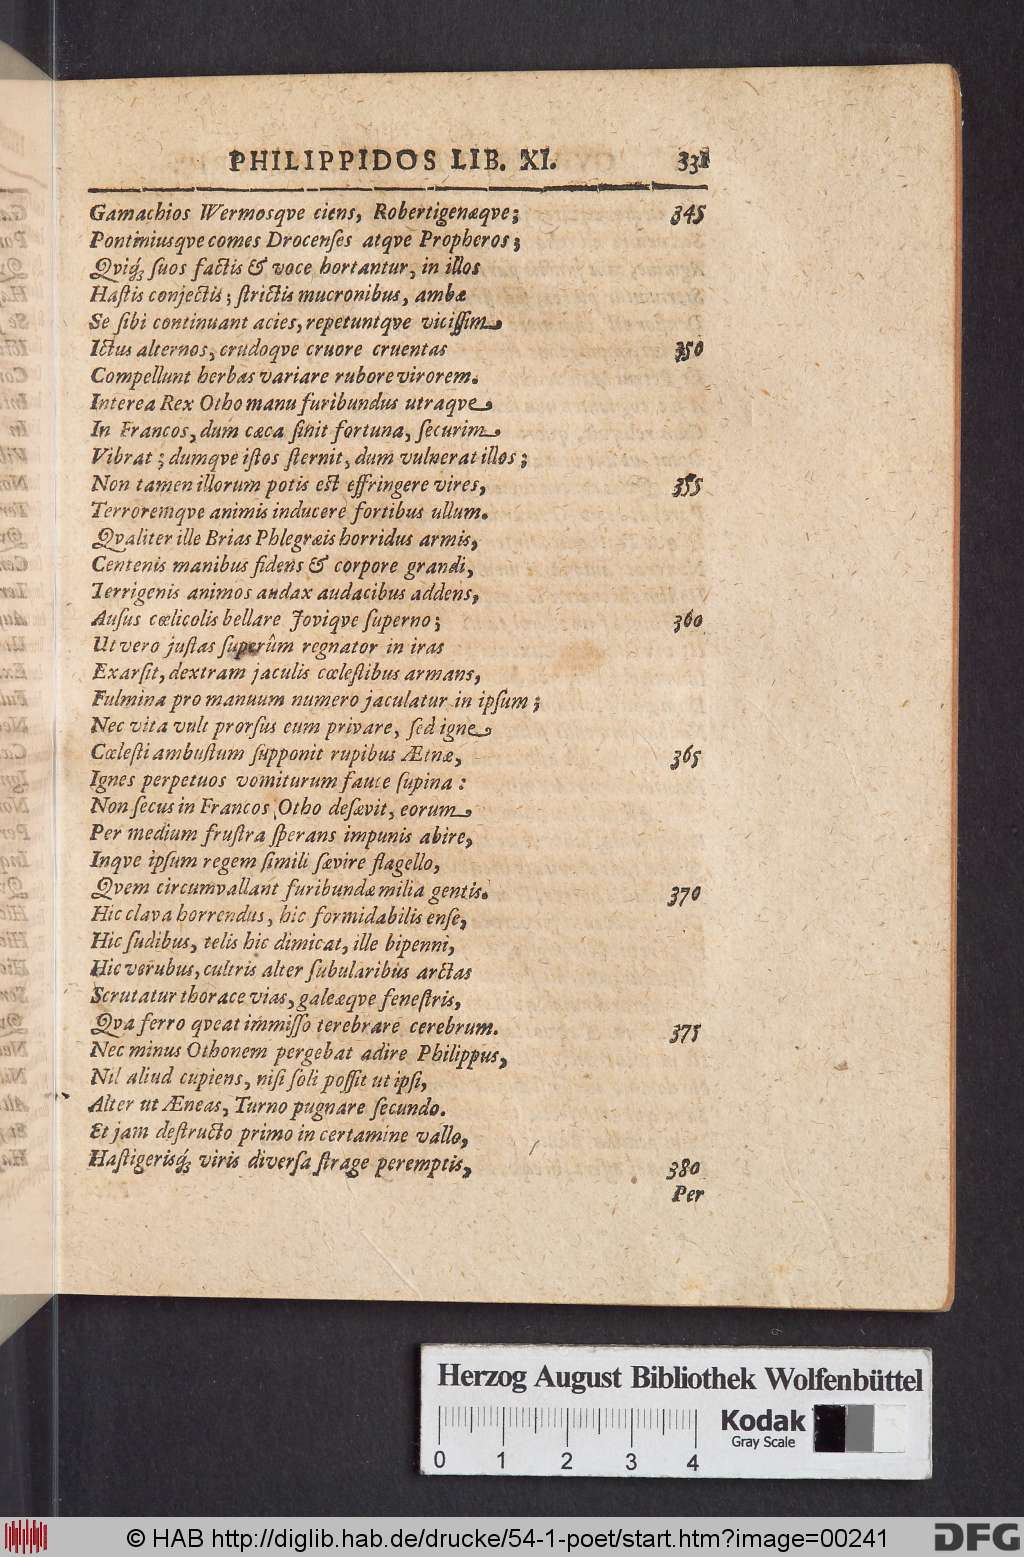 PHILIPPIDOS LIB. XI. 331
Gamachios Wermosqve ciens, Robertigenæqve; 345
Pontiniusqve comes Drocenſes atqve Propheros;
Qviq́; ſuos factis & voce hortantur, in illos
Haſtis conjectis; ſtrictis mucronibus, ambæ
Se ſibi continuant acies, repetuntqve viciſſim
Ictus alternos, crudoqve cruore cruentas 350
Compellunt herbas variare rubore virorem.
Interea Rex Otho manu furibundus utraqve
In Francos, dum cæca ſinit fortuna, ſecurim
Vibrat; dumqve iſtos ſternit, dum vulnerat illos;
Non tamen illorum potis eſt effringere vires, 355
Terroremqve animis inducere fortibus ullum.
Qvaliter ille Brias Phlegræis horridus armis,
Centenis manibus fidens & corpore grandi,
Terrigenis animos audax audacibus addens,
Auſus cœlicolis bellare Joviqve ſuperno; 360
Ut vero juſtas ſuperûm regnator in iras
Exarſit, dextram jaculis cœleſtibus armans,
Fulmina pro manuum numero jaculatur in ipſum;
Nec vita vult prorſus eum privare, ſed igne
Cœleſti ambuſtum ſupponit rupibus Ætnæ, 365
Ignes perpetuos vomiturum fauce ſupina:
Non ſecus in Francos Otho deſævit, eorum
Per medium fruſtra ſperans impunis abire,
Inqve ipſum regem ſimili ſævire flagello,
Qvem circumvallant furibundæ milia gentis. 370
Hic clava horrendus, hic formidabilis enſe,
Hic ſudibus, telis hic dimicat, ille bipenni,
Hic verubus, cultris alter ſubularibus arctas
Scrutatur thorace vias, galeæqve feneſtris,
Qva ferro qveat immiſſo terebrare cerebrum. 375
Nec minus Othonem pergebat adire Philippus,
Nil aliud cupiens, niſi ſoli poſſit ut ipſi,
Alter ut Æneas, Turno pugnare ſecundo.
Et jam deſtructo primo in certamine vallo,
Haſtigerisq́; viris diverſa ſtrage peremptis, 380
Per
Herzog August Bibliothek Wolfenbüttel
Kodak
Gray Scale
0 1 2 3 4
© HAB http://diglib.hab.de/drucke/54-1-poet/start.htm?image=00241
DFG